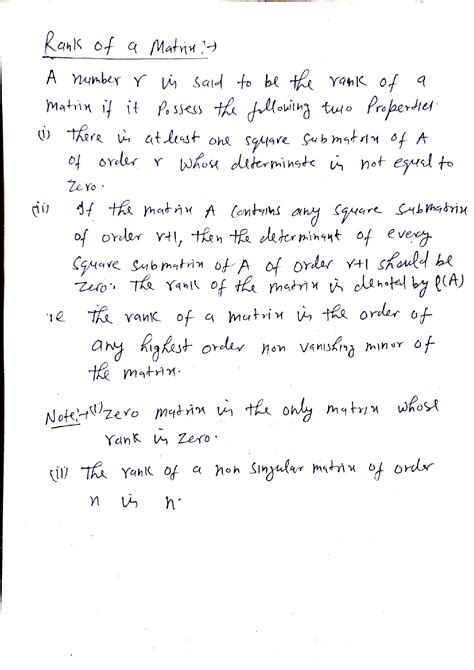 Rank of a Matrix :→
A number r is said to be the rank of a
matrix if it Possess the following two Properties.
(i) There is atleast one square submatrix of A
of order r whose determinate is not equal to
Zero.
(ii) If the matrix A contains any square submatrix
of order r+1, then the determinant of every
square submatrix of A of order r+1 should be
Zero. The rank of the matrix is denoted by ρ(A)
ie the rank of a matrix is the order of
any highest order non vanishing minor of
the matrix.
Note:→(i) Zero matrix is the only matrix whose
rank is zero.
(ii) The rank of a non singular matrix of order
n is n.